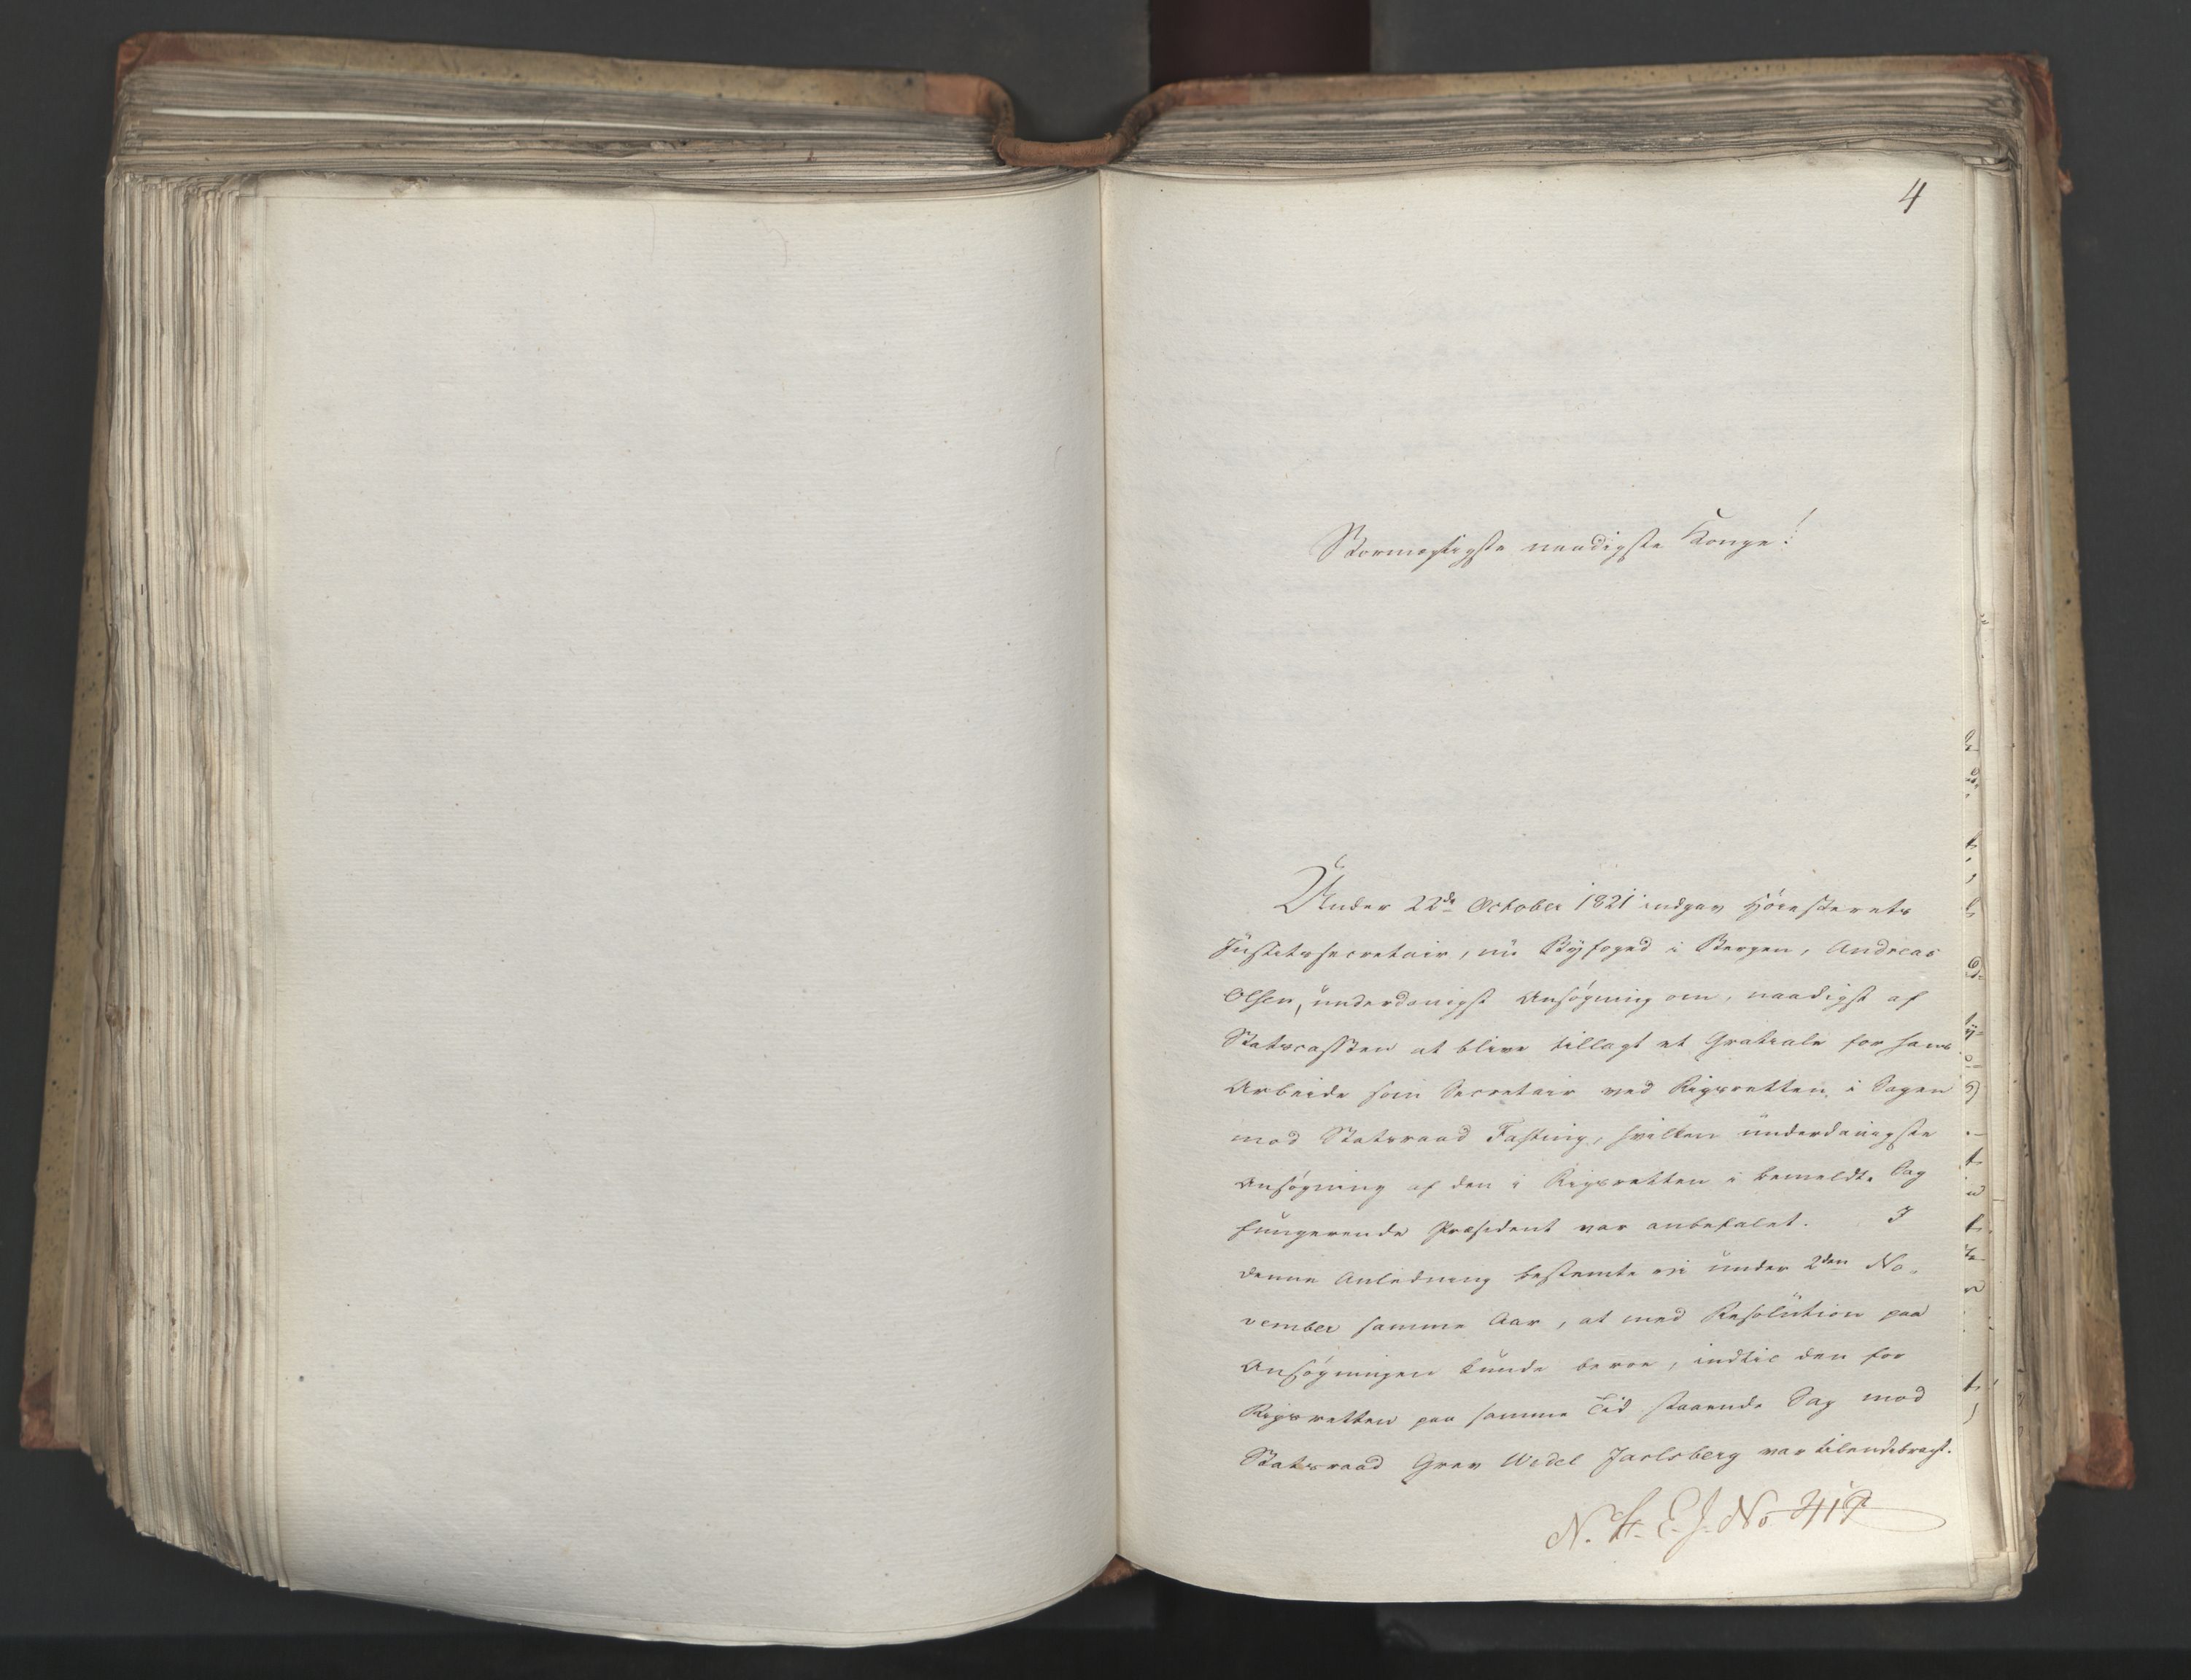 4
Stormægtigste naadigste Konge!
Under 22de October 1821 indgav Höiesterets
Justitssecretair, nu Byfoged i Bergen, Andreas
Olsen, underdanigst Ansøgning om, naadigst af
Statscassen at blive tillagt et Gratiale for hans
Arbeide som Secretair ved Rigsretten i Sagen
mod Statsraad Fasting, hvilken underdanigste
Ansøgning af den i Rigsretten i bemeldte Sag
fungerende Præsident var anbefalet. I
denne Anledning bestemte vi under 2den No-
vember samme Aar, at med Resolution paa
Ansøgningen kunde beroe, indtil den for
Rigsretten paa samme Tid staaende Sag mod
Statsraad Grev Wedel Jarlsberg var tilendebragt.
N. H. E. J. No 419